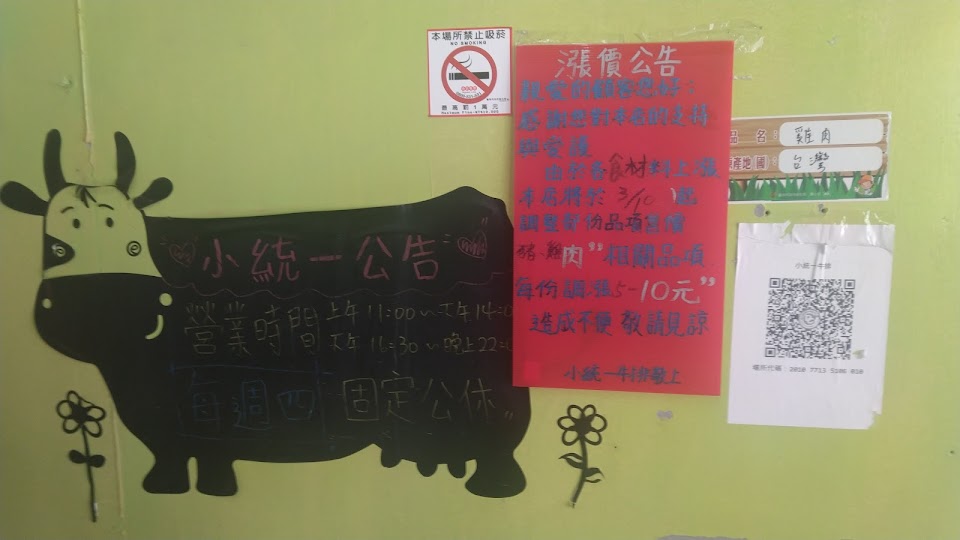 本場所禁止吸菸
NO SMOKING
最高罰1萬元
漲價公告
親愛的顧客您好：
感謝您對本店的支持
與愛護
由於各食材料上漲
本店將於 3/10 起
調整部份品項售價
豬、雞肉”相關品項
每份調漲5-10元”
造成不便 敬請見諒
小統一牛排敬上
品 名：雞肉
原產地國：台灣
小統一牛排
場所代碼：2010 7713 5106 050
小統一公告
營業時間
上午11:00～下午14:0
下午16:30～晚上22:
每週四 固定公休